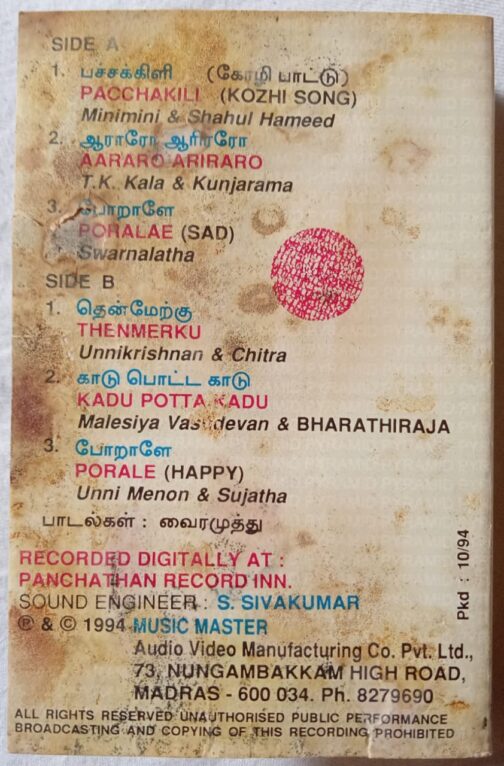 SIDE A
1. பச்சக்கிளி (கோழி பாட்டு)
PACCHAKILI (KOZHI SONG)
Minimini & Shahul Hameed
2. ஆராரோ ஆரிரரோ
AARARO ARIRARO
T.K. Kala & Kunjarama
3. போறாளே
PORALAE (SAD)
Swarnalatha
SIDE B
1. தென்மேற்கு
THENMERKU
Unnikrishnan & Chitra
2. காடு பொட்ட காடு
KADU POTTA KADU
Malesiya Vasudevan & BHARATHIRAJA
3. போறாளே
PORALE (HAPPY)
Unni Menon & Sujatha
பாடல்கள் : வைரமுத்து
RECORDED DIGITALLY AT :
PANCHATHAN RECORD INN.
SOUND ENGINEER : S. SIVAKUMAR
℗ & © 1994 MUSIC MASTER
Audio Video Manufacturing Co. Pvt. Ltd.,
73, NUNGAMBAKKAM HIGH ROAD,
MADRAS - 600 034. Ph. 8279690
ALL RIGHTS RESERVED UNAUTHORISED PUBLIC PERFORMANCE
BROADCASTING AND COPYING OF THIS RECORDING PROHIBITED
Pkd : 10/94